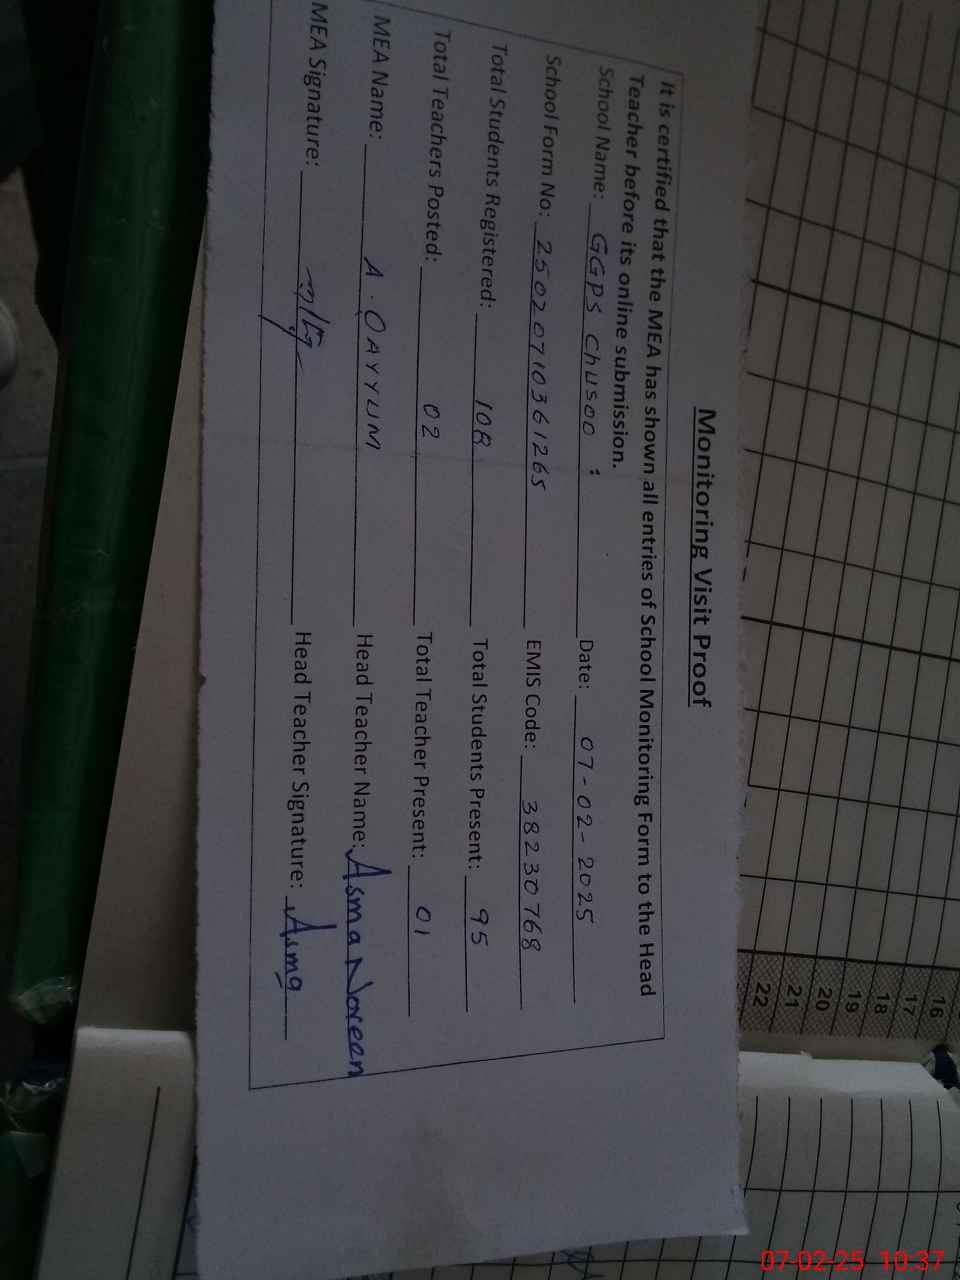 Monitoring Visit Proof
It is certified that the MEA has shown all entries of School Monitoring Form to the Head
Teacher before its online submission.
School Name: GGPS Chusoo : Date: 07-02-2025
School Form No: 25020710361265 EMIS Code: 38230768
Total Students Registered: 108 Total Students Present: 95
Total Teachers Posted: 02 Total Teacher Present: 01
MEA Name: A. QAYYUM Head Teacher Name: Asma Noreen
MEA Signature: Head Teacher Signature: Asma
16
17
18
19
20
21
22
07-02-25 10:37